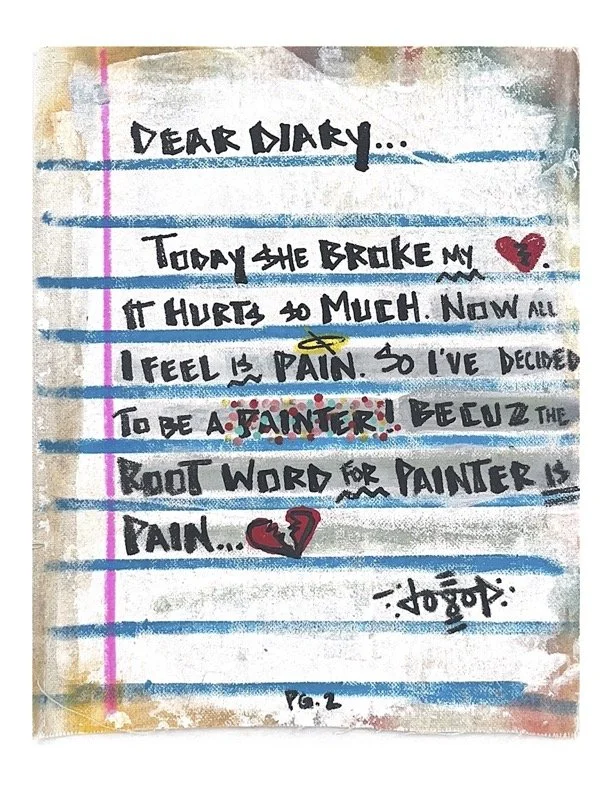 DEAR DIARY...
TODAY SHE BROKE MY ❤.
IT HURTS SO MUCH. NOW ALL
I FEEL IS PAIN. SO I'VE DECIDED
TO BE A PAINTER! BECUZ THE
ROOT WORD FOR PAINTER IS
PAIN...
PG. 2